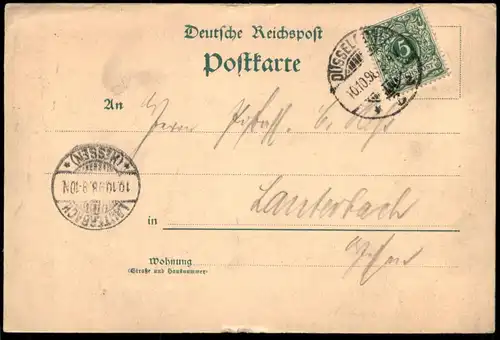 Deutsche Reichspost
Postkarte
DÜSSEL
10.10.98
5
An
Herrn
in
Lauterbach
Hessen
Wohnung
(Straße und Hausnummer)
LAUTERBACH
10.10.98.8-10N.
* (HESSEN) *